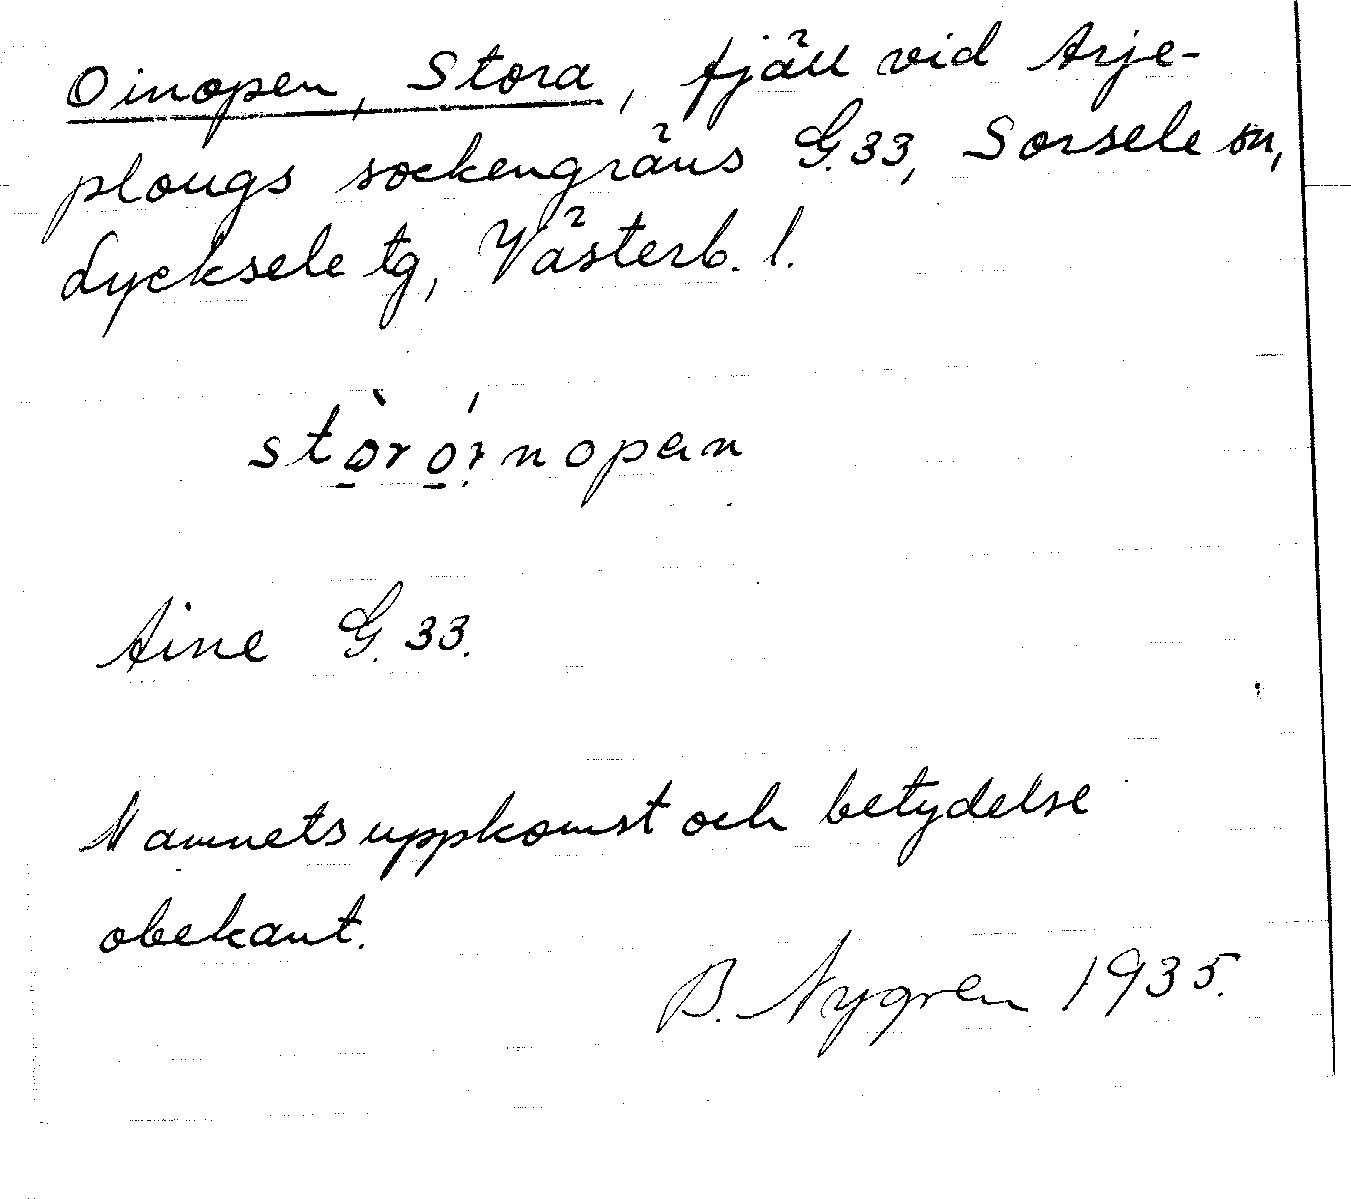 Oinopen, Stora, fjäll vid Arje-
plougs sockengräns G.33, Sorsele sn,
Lycksele tg, Västerb. l.
stòror´nopan
Aine G. 33.
Namnets uppkomst och betydelse
obekant.
B. Nygren 1935.